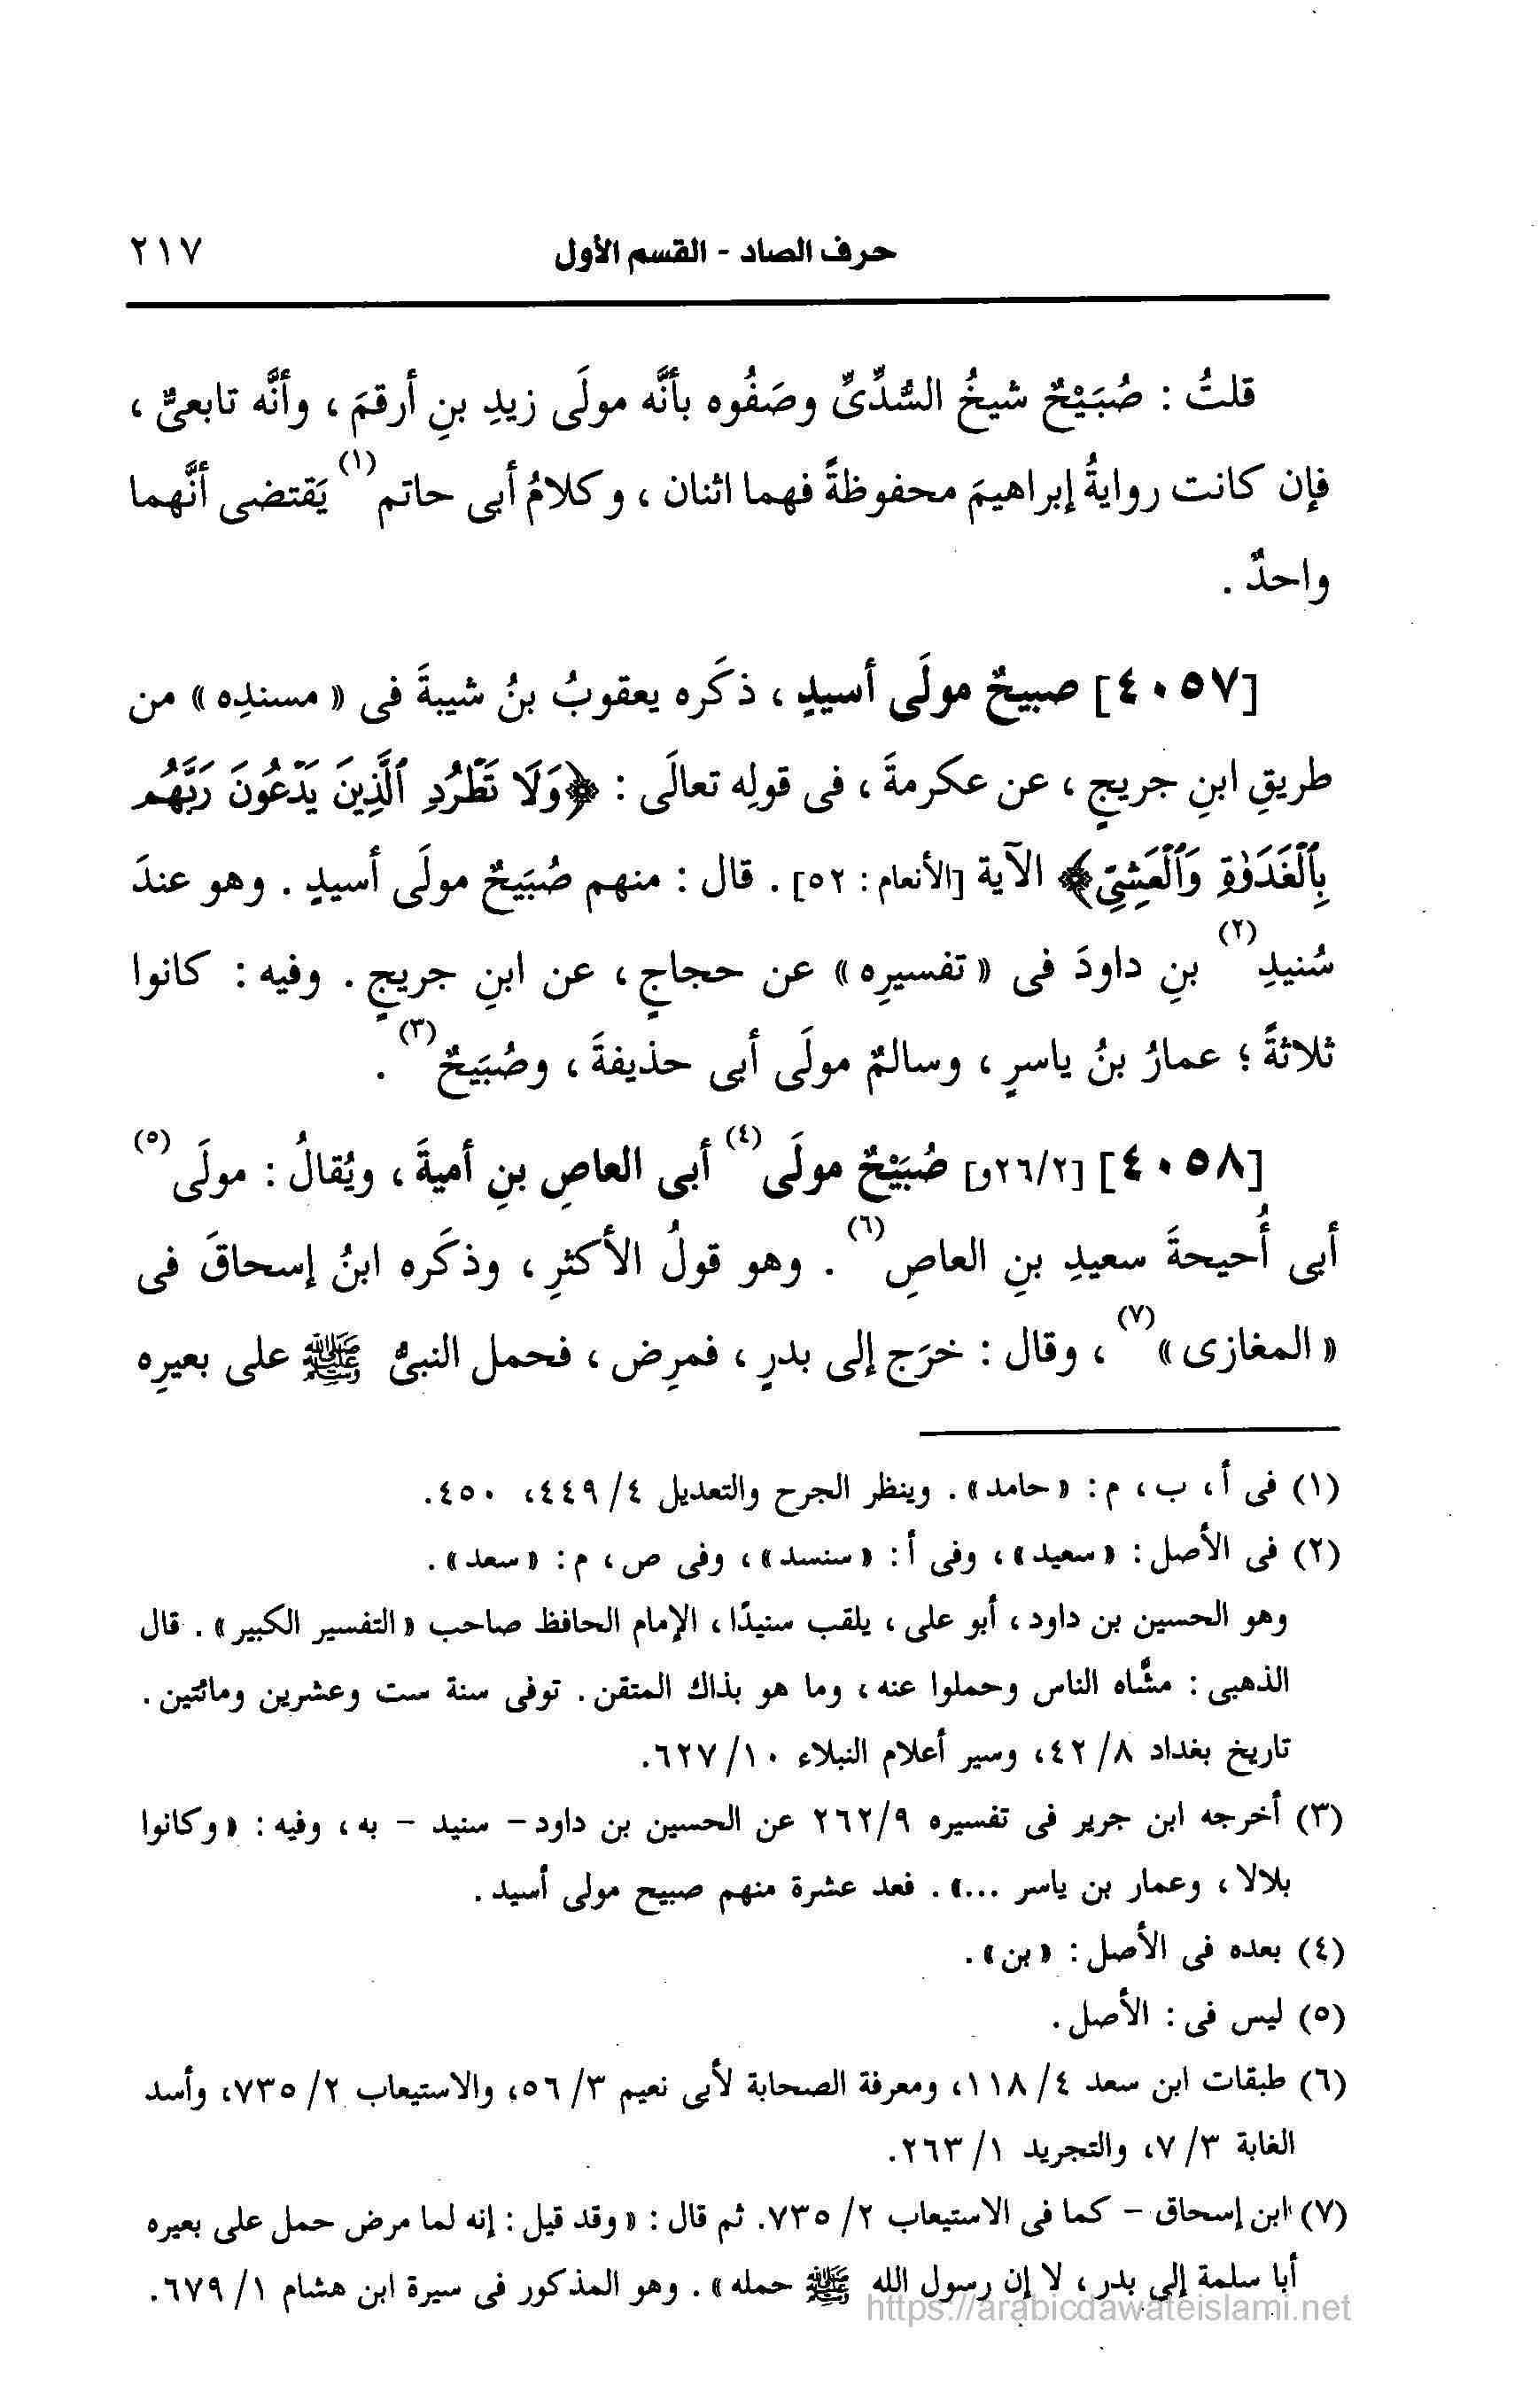 حرف الصاد - القسم الأول ٢١٧
قلتُ : صُبَيْحٌ شيخُ السُّدِّىِّ وصَفُوه بأنَّه مولَى زيدِ بنِ أرقمَ ، وأنَّه تابعىٌّ ،
فإن كانت روايةُ إبراهيمَ محفوظةً فهما اثنان ، وكلامُ أبى حاتم(١) يَقتضى أنَّهما
واحدٌ .
[٤٠٥٧] صبيحٌ مولَى أسيدٍ ، ذكَره يعقوبُ بنُ شيبةَ فى « مسندِه » من
طريقِ ابنِ جريجٍ ، عن عكرمةَ ، فى قولِه تعالَى : ﴿وَلَا تَطْرُدِ ٱلَّذِينَ يَدْعُونَ رَبَّهُم
بِٱلْغَدَوٰةِ وَٱلْعَشِىِّ﴾ الآية [الأنعام : ٥٢] . قال : منهم صُبَيحٌ مولَى أسيدٍ . وهو عندَ
سُنيدِ(٢) بنِ داودَ فى « تفسيرِه » عن حجاجٍ ، عن ابنِ جريجٍ . وفيه : كانوا
ثلاثةً ؛ عمارُ بنُ ياسرٍ ، وسالمٌ مولَى أبى حذيفةَ ، وصُبَيحٌ(٣) .
[٤٠٥٨] [٢٦/٢و] صُبَيْحٌ مولَى(٤) أبى العاصِ بنِ أميةَ ، ويُقالُ : مولَى(٥)
أبى أُحيحةَ سعيدِ بنِ العاصِ(٦) . وهو قولُ الأكثرِ ، وذكَره ابنُ إسحاقَ فى
« المغازى »(٧) ، وقال : خرَج إلى بدرٍ ، فمرِض ، فحمل النبىُّ ﷺ على بعيرِه
(١) فى أ ، ب ، م : « حامد » . وينظر الجرح والتعديل ٤/ ٤٤٩، ٤٥٠.
(٢) فى الأصل : « سعيد » ، وفى أ : « سنسد » ، وفى ص ، م : « سعد » .
وهو الحسين بن داود ، أبو على ، يلقب سنيدًا ، الإمام الحافظ صاحب « التفسير الكبير » . قال
الذهبى : مشَّاه الناس وحملوا عنه ، وما هو بذاك المتقن . توفى سنة ست وعشرين ومائتين .
تاريخ بغداد ٨/ ٤٢، وسير أعلام النبلاء ١٠/ ٦٢٧.
(٣) أخرجه ابن جرير فى تفسيره ٩/ ٢٦٢ عن الحسين بن داود - سنيد - به ، وفيه : « وكانوا
بلالا ، وعمار بن ياسر ...» . فعد عشرة منهم صبيح مولى أسيد .
(٤) بعده فى الأصل : « بن » .
(٥) ليس فى : الأصل .
(٦) طبقات ابن سعد ٤/ ١١٨، ومعرفة الصحابة لأبى نعيم ٣/ ٥٦، والاستيعاب ٢/ ٧٣٥، وأسد
الغابة ٣/ ٧، والتجريد ١/ ٢٦٣.
(٧) ابن إسحاق - كما فى الاستيعاب ٢/ ٧٣٥. ثم قال : « وقد قيل : إنه لما مرض حمل على بعيره
أبا سلمة إلى بدر ، لا إن رسول الله ﷺ حمله » . وهو المذكور فى سيرة ابن هشام ١/ ٦٧٩.
https://arabicdawateislami.net